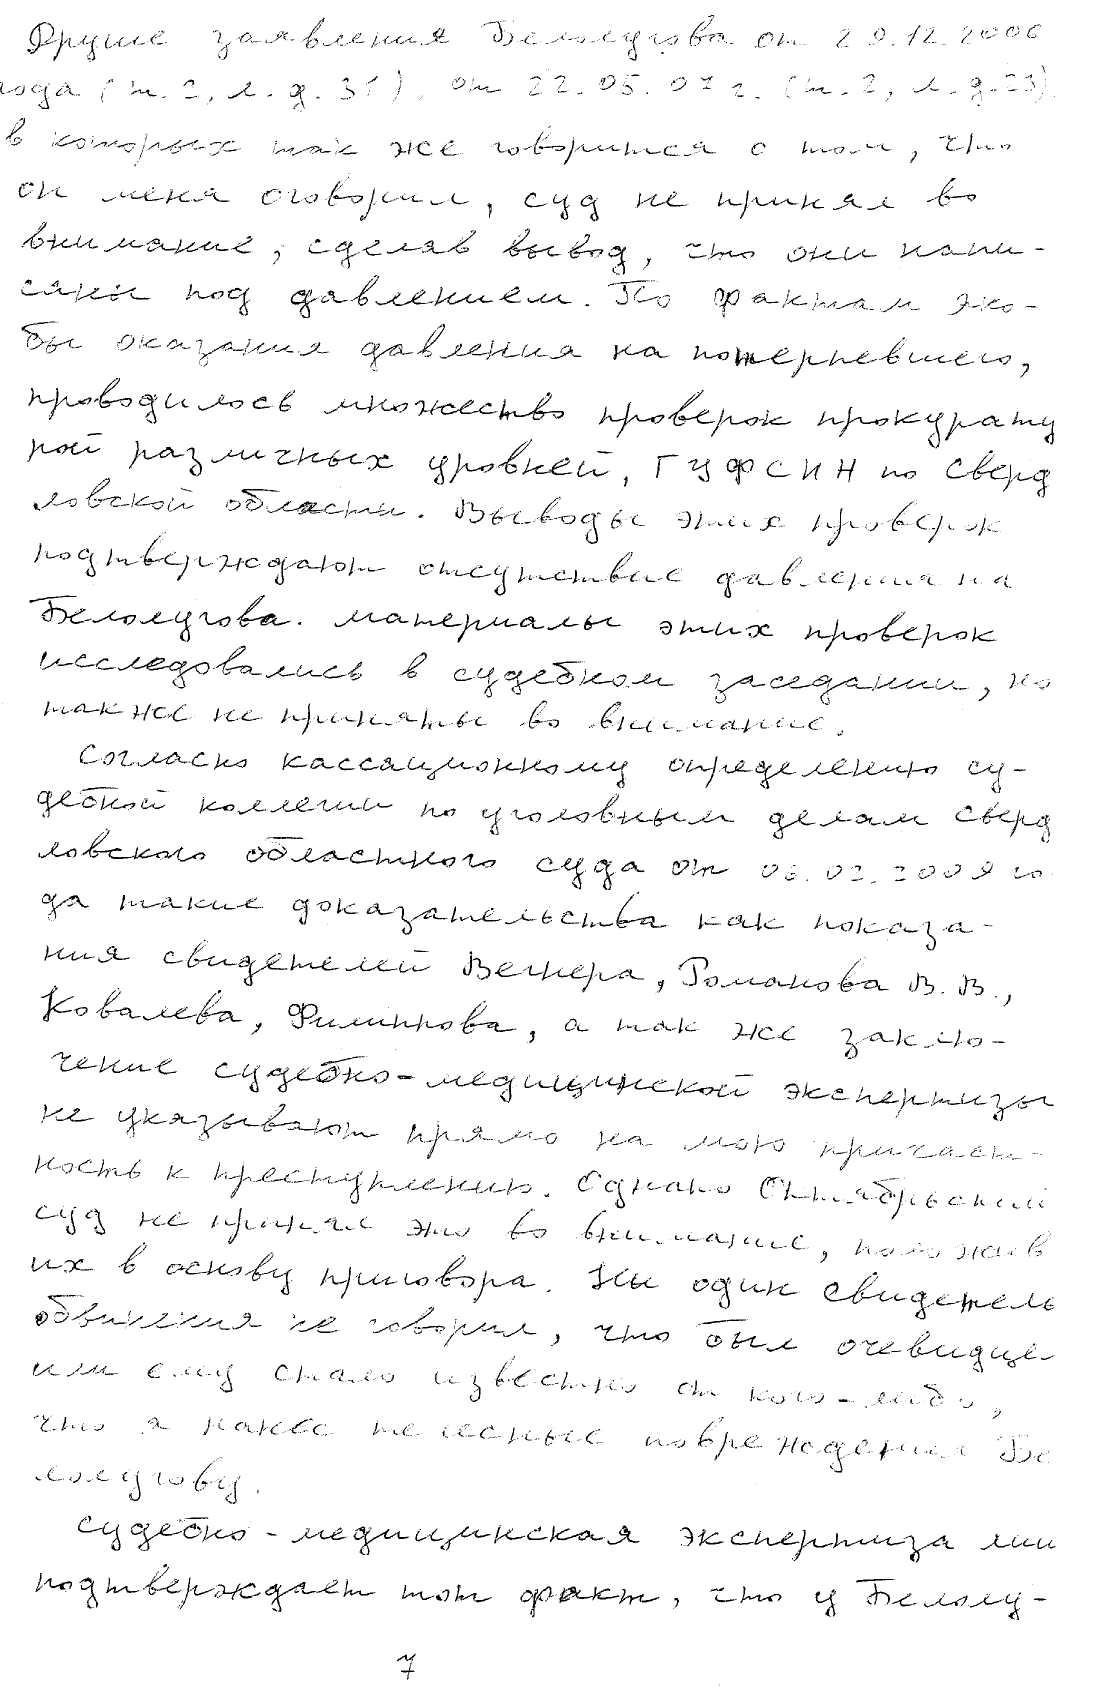 Другие заявления Белоусова от 20.12.2006
года (т.2, л.д.31), от 22.05.07 г. (т.2, л.д.23)
в которых так же говорится о том, что
он меня оговорил, суд не принял во
внимание, сделав вывод, что они напи-
саны под давлением. По фактам яко-
бы оказания давления на потерпевшего,
проводилось множество проверок прокурату
рой различных уровней, ГУФСИН по Сверд
ловской области. Выводы этих проверок
подтверждают отсутствие давления на
материалы этих проверок
исследовались в судебном заседании, но
так же не приняты во внимание.
Согласно кассационному определению су-
дебной коллегии по уголовным делам Сверд
ловского областного суда от 06.02.2009 го
да такие доказательства как показа-
ния свидетелей Романова В.В.,
Ковалева, Филиппова, а так же заклю-
чение судебно-медицинской экспертизы
не указывают прямо на мою причаст-
ность к преступлению. Однако Октябрьский
суд не принял это во внимание, положив
их в основу приговора. Ни один свидетель
обвинения не говорил, что был очевидце
или ему стало известно от кого-либо,
что я нанес телесные повреждения Бе
судебно-медицинская экспертиза лиш
подтверждает тот факт, что у
7